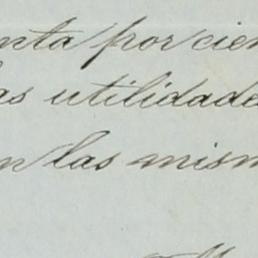 nta por cien
as utilidade
n las mism